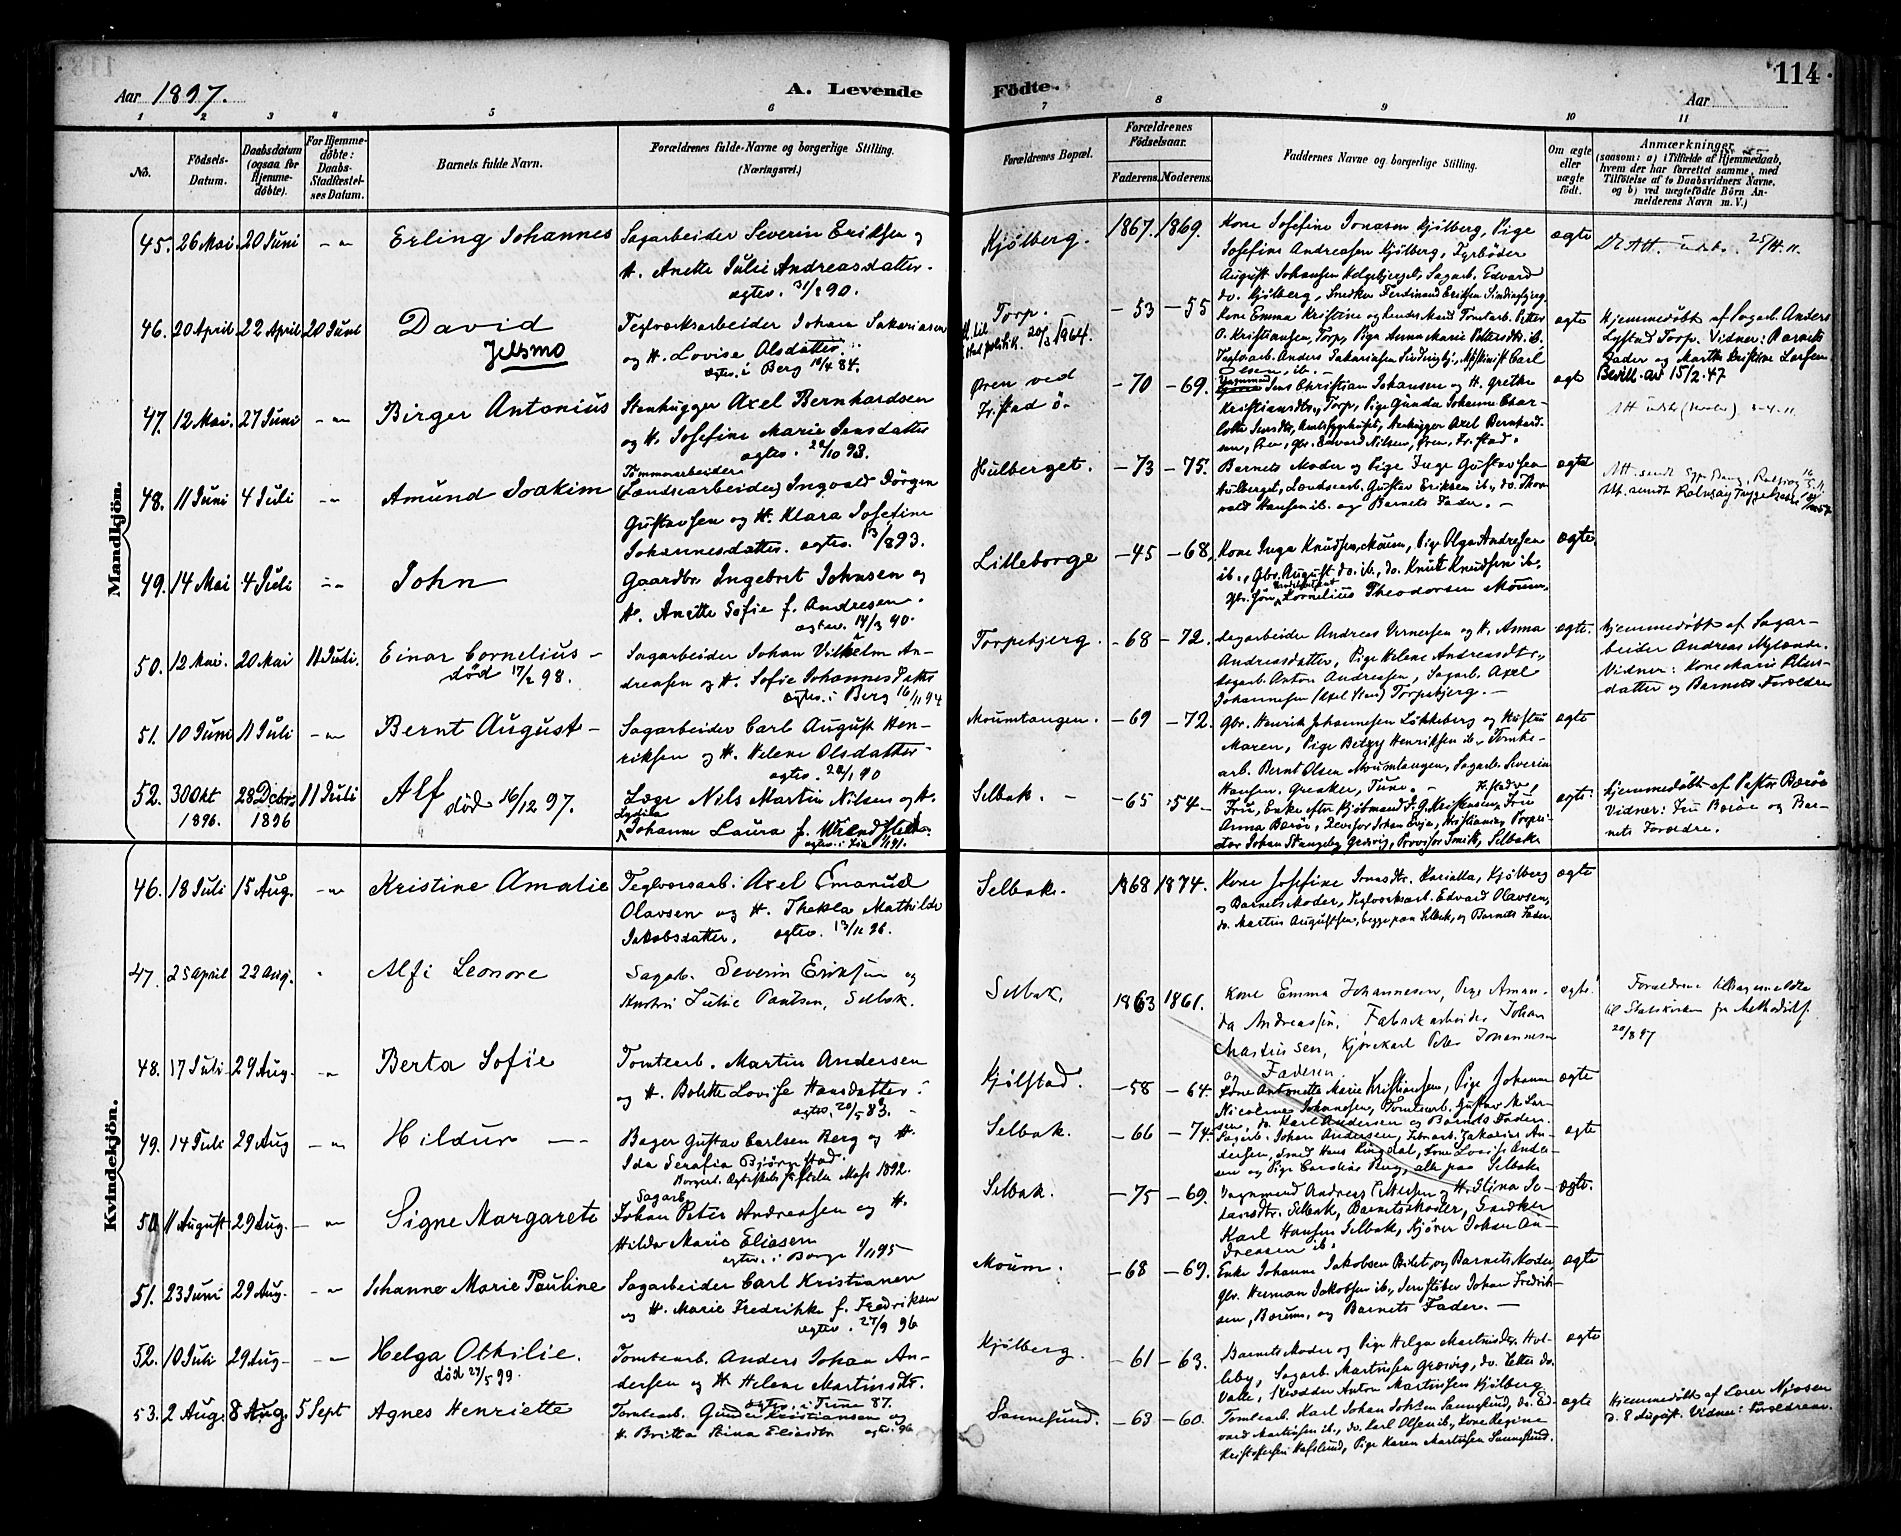 114.
Aar 1897.
A. Levende
Födte.
Aar
1 2 3 4 5 6 7 8 9 10 11
No.
Födsels-
Datum.
Daabsdatum
(ogsaa for
Hjemme-
döbte).
For Hjemme-
döbte:
Daabs-
Stadfæstel-
ses Datum.
Barnets fulde Navn.
Forældrenes fulde Navne og borgerlige Stilling.
(Næringsvei.)
Forældrenes Bopæl.
Forældrenes
Födselsaar.
Faderens. Moderens.
Faddernes Navne og borgerlige Stilling.
Om ægte
eller
uægte
födt.
Anmærkninger
(saasom: a) i Tilfælde af Hjemmedaab,
hvem der har forrettet samme, med
Tilföielse af to Daabsvidners Navne,
og b) ved uægtefödte Börn An-
melderens Navn m. V.)
Mandkjön.
45. 26 Mai. 20 Juni
Erling Johannes
Sagarbeider Severin Eriksen og
H. Anette Julie Andreasdatter.
ægtev. 31/8 90.
Kjølberg.
1867. 1869.
Kone Josefine Jonasen Kjølberg, Pige
Josefine Andreasen Kjølberg, Fyrbøder
August Johansen Helgebjerget, Sagarb. Edvard
do. Kjølberg, Snedker Ferdinand Eriksen
ægte
46. 20 April. 22 April 20 Juni
David
Jelsmo
Teglværksarbeider Johan Sakariasen
og H. Lovise Olsdatter
ægtev. i Berg 84.
Torp.
20/3 1964.
-53 -55
Kone Emma Kristine og Tomtearb. Peter
O. Kristiansen, Torp, Pige Anna Marie Petersdtr. ib.
Teglværksarb. Anders Sakariasen Carl
Olsen, ib.
ægte
Hjemmedøbt af Sagarb. Anders
Lystad Torp. Vidner: Barnets
Fader og Marthe Kristine Larsen
Bevill. av 15/2.47
47. 12 Mai. 27 Juni
Birger Antonius
Stenhugger Axel Bernhardsen
og H. Josefine Marie Jensdatter
ægtev. 22/10 93.
Øren ved
Fr.stad ö.
-70 -69.
Jens Christian Johansen og H. Grethe
Kristiansdtr., Torp, Pige Gunda Johanne Char-
lotte Jensdtr., Stenhugger Axel Bernhard-
sen, Øren, Gbr. Edvard Nilsen, Øren, Fr.stad.
ægte
48. 11 Juni 4 Juli
Amund Joakim
Tømmerarbeider
(Landsearbeider) Ingvald Jørgen
Gustavsen og H. Klara Josefine
Johannesdatter. ægtev. 13/8 93.
Hulberget.
-73 -75.
Barnets Moder og Pige Inge Gustavsen
Hulberget, Landsearb. Gustav Eriksen ib., do. Thor-
vald Hansen ib. og Barnets Fader.
ægte
49. 14 Mai 4 Juli
John
Gaardbr. Ingebret Johnsen og
H. Anette Sofie f. Andresen.
ægtev. 14/3 90.
Lilleborge
-45 -68.
Kone Inga Knudsen Moum, Pige Olga Andresen
ib., Gbr. August do. ib., do. Knut Knudsen ib.
Gbr. Søn Kornelius Theodorsen Moum.
ægte.
50. 12 Mai. 20 Mai 11 Juli.
Einar Cornelius
død 17/2 98.
Sagarbeider Johan Vilhelm An-
dreasen og H. Sofie Johannesdatter
ægtev. i Berg 16/11 94
Torpebjerg.
-68 -72.
Sagarbeider Andreas Svensen og H. Anna
Andreasdatter, Pige Helene Andreasdtr.,
Sagarb. Anton Andreasen, Sagarb. Axel
Johannesen Torpebjerg.
ægte.
Hjemmedøbt af Sagar-
beider Andreas
Vidner: Kone Marie Peters-
datter og Barnets Forældre
51. 10 Juni 11 Juli
Bernt August
Sagarbeider Carl August Hen-
riksen og H. Helene Olsdatter
ægtev. 90
Moumtangen.
-69 -72.
Gbr. Henrik Johannesen Løkkeberg og Hustru
Maren, Pige Betzy Henriksen ib., Tomte-
arb. Bernt Olsen Moumtangen, Sagarb. Severin
Hansen, Greaker, Tune.
ægte
52. 30 Okt 28 Decbr. 11 Juli
1896. 1896
Alf
død 16/12 97.
Læge Nils Martin Nilsen og H.
Johanne Laura f.
Selbak.
-65 -54
Fru, Enke efter Kjøbmand Kristensen, Fru
Anna Barøe, Revisor Johan
Johan Stangeby Græsvig, Provisor Smith, Selbak
ægte.
Hjemmedøbt af Pastor Barøe
Vidner: Fru Barøe og Bar-
nets Forældre.
Kvindekjön.
46. 18 Juli 15 Aug.
Kristine Amalie
Teglverksarb. Axel Emanuel
Olavsen og H. Thekla Mathilde
Jakobsdatter. ægtev. 13/11 96.
Selbak.
1868 1874.
Kone Josefine Jonasdtr. Kjølberg
og Barnets Moder, Teglværksarb. Edvard Olavsen,
do. Martin Augustsen, begge paa Selbak, og Barnets Fader.
ægte
47. 25 April 22 Aug.
Alfi Leonore
Sagarb. Severin Eriksen og
Hustru Julie Paulsen, Selbak.
Selbak.
1863 1861.
Kone Emma Johannesen, Pige Aman-
da Andreassen, Fabrikarbeider Johan
Martinsen, Kjørekarl Peter Johannesen
og Faderen.
ægte.
Forældrene tilbagemeldte
til Statskirken fra Methodistf.
20/8 97
48. 17 Juli 29 Aug.
Berta Sofie
Tomtearb. Martin Andersen
og H. Bolette Lovise Hansdatter
ægtev. 20/5 83.
Kjølstad.
-58 -64.
Kone Antonette Marie Kristiansen, Pige Johanne
Nicoline Johansen, Tomtearb. Gustav M. Lar-
sen, do. Karl Andersen og Barnets Fader.
ægte
49. 14 Juli 29 Aug
Hildur
Bager Gustav Carlsen Berg og H.
Ida Serafia Bjørgestad.
Moss 1892.
Selbak.
-66 -74
Sagarb. Johan Andersen, Sakarias An-
dersen, Smed Hans Ringdal, Kone Lovise Ander-
sen og Pige Berg, alle paa Selbak
ægte
50. 11 August 29 Aug.
Signe Margarete
Sagarb.
Johan Peter Andreassen og H.
Hilda Marie Eliasen
ægtev. i Borge 1/11 95
Selbak.
-75 -69.
Andreas Pettersen og H. Stina Jo-
hansdtr. Selbak, Barnets Moder, Snedker
Karl Hansen Selbak, Kjører Johan An-
dreasen ib.
ægte.
51. 23 Juni 29 Aug.
Johanne Marie Pauline
Sagarbeider Carl Kristiansen
og H. Marie Fredrikke f. Fredriksen
ægtev. 27/9 96
Moum.
-68 -69.
Enke Johanne Jakobsen Bilet, og Barnets Moder
Gbr. Herman Jakobsen ib., Jernstøber Johan Fredrik-
sen, og Barnets Fader.
ægte
52. 10 Juli 29 Aug
Helga Othilie.
død 27/5 99.
Tomtearb. Anders Johan An-
dersen og H. Helene Martinsdtr.
ægtev. i Tune 87.
Kjølberg.
-61 -63.
Barnets Moder og Pige Helga Martinsdtr. Hol-
leby, Sagarb. Martinsen Græsvig, do. Petter do.
Valle, Skrædder Anton Martinsen Kjølberg
ægte
53. 2 Aug. 8 Aug. 5 Sept
Agnes Henriette
Tomtearb. Gunder Kristiansen og
H. Britta Stina Eliasdtr
Sannesund.
-63 -60.
Tomtearb. Karl Johan Johnsen Sannesund, do. Ed-
vard Martinsen ib., do. Karl Olsen ib., Kone Regine
Kristofersen Hafslund, Pige Karen Martinsen Sannesund.
ægte
Hjemmedøbt af Lærer
d. 8 August. Vidner: Forældrene.